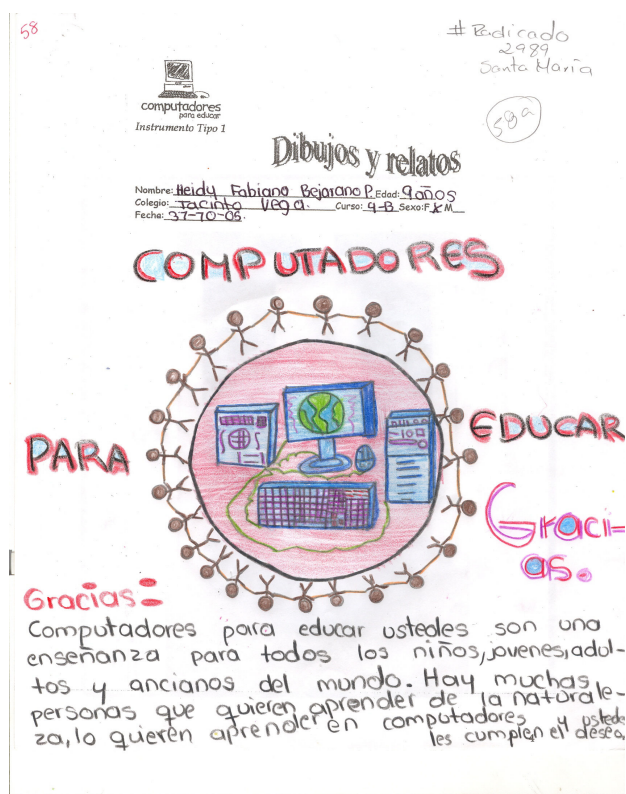 58
# Radicado
2989
Santa María
58a
computadores
para educar
Instrumento Tipo 1
Dibujos y relatos
Nombre: Heidy Fabiana Bejarano P. Edad: 9 años
Colegio: Jacinto Vega. Curso: 4-B Sexo: F X M
Fecha: 31-10-05.
COMPUTADORES
PARA
EDUCAR
Graci-
as.
Gracias:
Computadores para educar ustedes son una
enseñanza para todos los niños, jovenes, adul-
tos y ancianos del mundo. Hay muchas
personas que quieren aprender de la naturale-
za, lo quieren aprender en computadores y ustede
les cumplen el deseo,